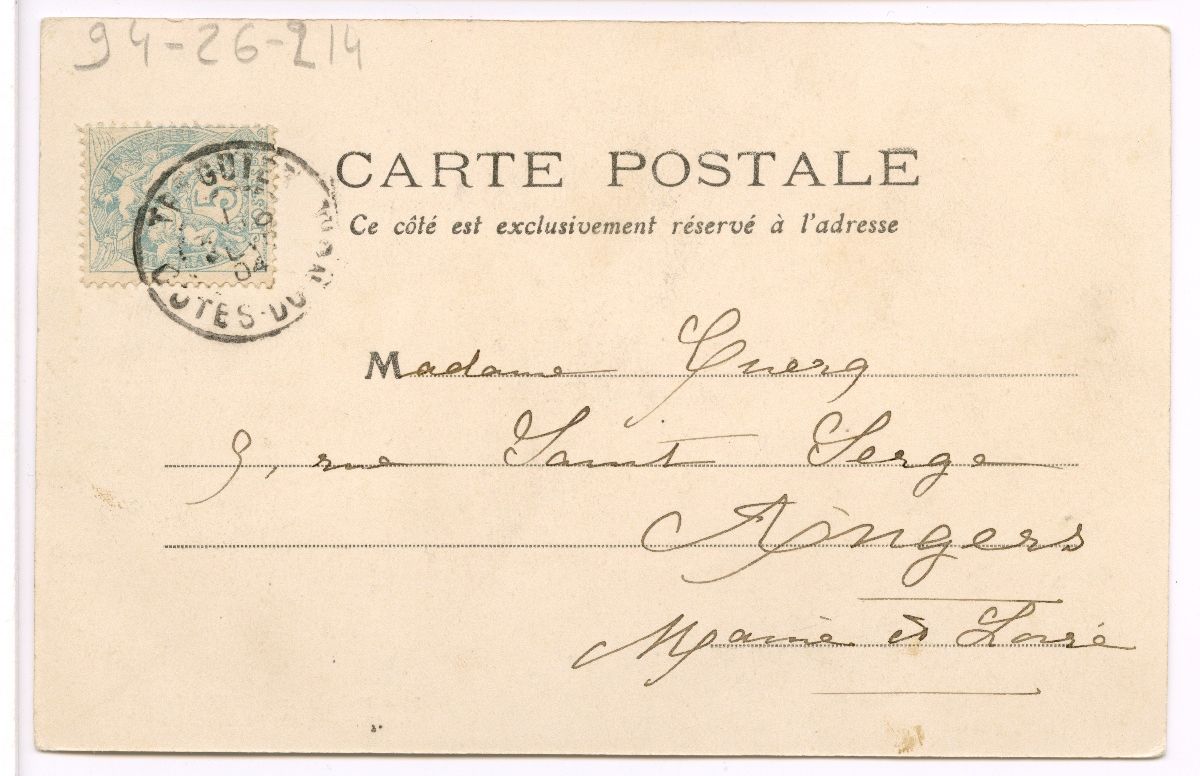 94-26-214
5
TRÉGUIER
04
CÔTES-DU-NORD
CARTE POSTALE
Ce côté est exclusivement réservé à l'adresse
Madame
9, rue Saint Serge
Angers
Maine et Loire